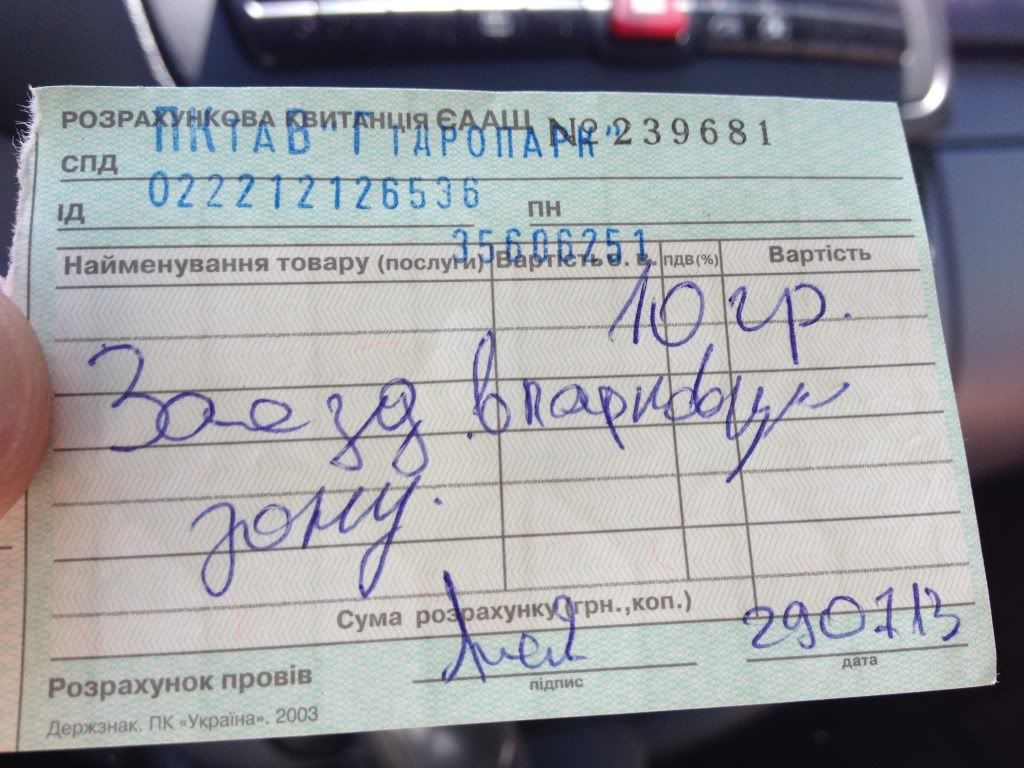 РОЗРАХУНКОВА КВИТАНЦІЯ ЄААЩ № 239681
СПД ПКіАВ "Гідропарк"
ІД 022212126536
ПН 35606251
Найменування товару (послуги) Вартість о. в. ПДВ(%) Вартість
10 гр.
Заезд в парковую
зону.
Сума розрахунку (грн.,коп.)
290713
Розрахунок провів підпис дата
Держзнак. ПК «Україна». 2003